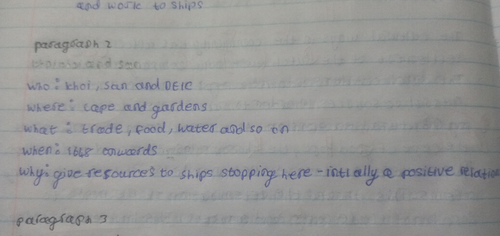 and work to ships
paragraph 2
who: khoi, san and DEIC
where: cape and gardens
what: trade, food, water and so on
when: 1668 onwards
why: give resources to ships stopping here - intially a positive relation
paragraph 3